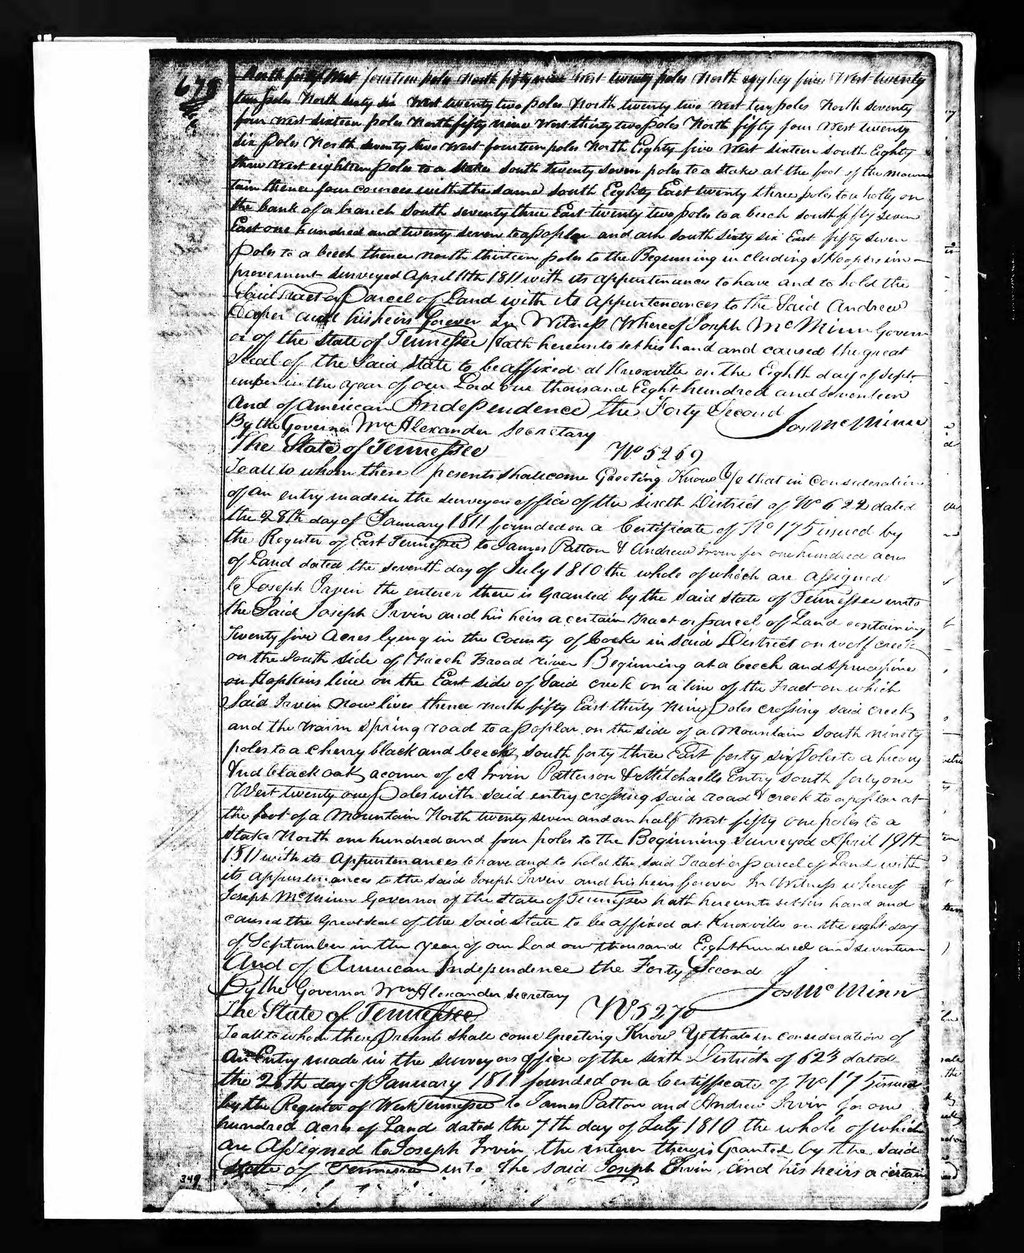 678
North forty West fourteen poles North fifty nine West twenty poles North eighty five West twenty
two poles North sixty six West twenty two poles North twenty two West ten poles North seventy
four West sixteen poles North fifty nine West thirty two poles North fifty four West twenty
six Poles North seventy two West fourteen poles North Eighty five West sixteen South Eighty
three West eighteen poles to a Stake South twenty seven poles to a Stake at the foot of the moun
tain thence four courses with the same South Eighty East twenty three poles to a holly on
the bank of a branch South seventy three East twenty two poles to a beech South fifty seven
East one hundred and twenty seven to a poplar and ash South sixty six East fifty seven
Poles to a beech thence North thirteen poles to the Beginning including Hoopers im-
provement Surveyed April 11th 1811 with its appurtenances to have and to hold the
Said Tract or Parcel of Land with its Appurtenances to the Said Andrew
and his heirs forever In Witness Whereof Joseph McMinn Govern
or of the State of Tennessee hath hereunto set his hand and caused the great
Seal of the Said State to be affixed at Knoxville on the Eighth day of Sept-
ember in the year of our Lord one thousand Eight hundred and Seventeen
And of American Independence the Forty Second
Jos McMinn
By the Governor Wm Alexander Secretary
The State of Tennessee No 5269
To all to whom these presents shall come Greeting Know Ye that in Consideration
of an entry made in the surveyors office of the Sixth District of No 622 dated
the 28th day of January 1811 founded on a Certificate of No 175 issued by
the Register of East Tennessee to James Patton & Andrew Irvin for one hundred acres
of Land dated the seventh day of July 1810 the whole of which are assigned
to Joseph Irvin the enterer there is Granted by the said State of Tennessee unto
the Said Joseph Irvin and his heirs a certain Tract or parcel of Land containing
Twenty five Acres lying in the County of Cocke in Said District on wolf creek
on the South side of French Broad river Beginning at a beech and Spruce pine
on Hopkins line on the East side of Said creek on a line of the Tract on which
Said Irvin now lives thence north fifty East thirty Nine Poles crossing said creek
and the warm Spring road to a poplar on the side of a Mountain South ninety
poles to a cherry black and beech South forty three East forty six Poles to a hicory
And black oak a corner of A Irvin Patterson & Mitchaells Entry South forty one
West twenty one Poles with said entry crossing said road & creek to a poplar at
the foot of a Mountain North twenty seven and an half West fifty one poles to a
Stake North one hundred and four poles to the Beginning Surveyed April 19th
1811 with its Appurtenances to have and to hold the said Tract or parcel of Land with
its Appurtenances to the said Joseph Irvin and his heirs forever In Witness whereof
Joseph McMinn Governor of the State of Tennessee hath hereunto set his hand and
caused the Great Seal of the Said State to be affixed at Knoxville on the eight day
of September in the year of our Lord one thousand Eight hundred and seventeen
And of American Independence the Forty Second
Jos McMinn
By the Governor Wm Alexander Secretary
The State of Tennessee No 5270
To all to whom these Presents Shall come Greeting Know Ye that in consideration of
An Entry made in the surveyors office of the sixth District of 623 dated
the 28th day of January 1811 founded on a Certificate of No 175 issued
by the Register of West Tennessee to James Patton and Andrew Irvin for one
hundred acres of Land dated the 7th day of July 1810 the whole of which
are Assigned to Joseph Irvin, the enterer there is Granted by the Said
State of Tennessee unto the said Joseph Irvin and his heirs a certain
349